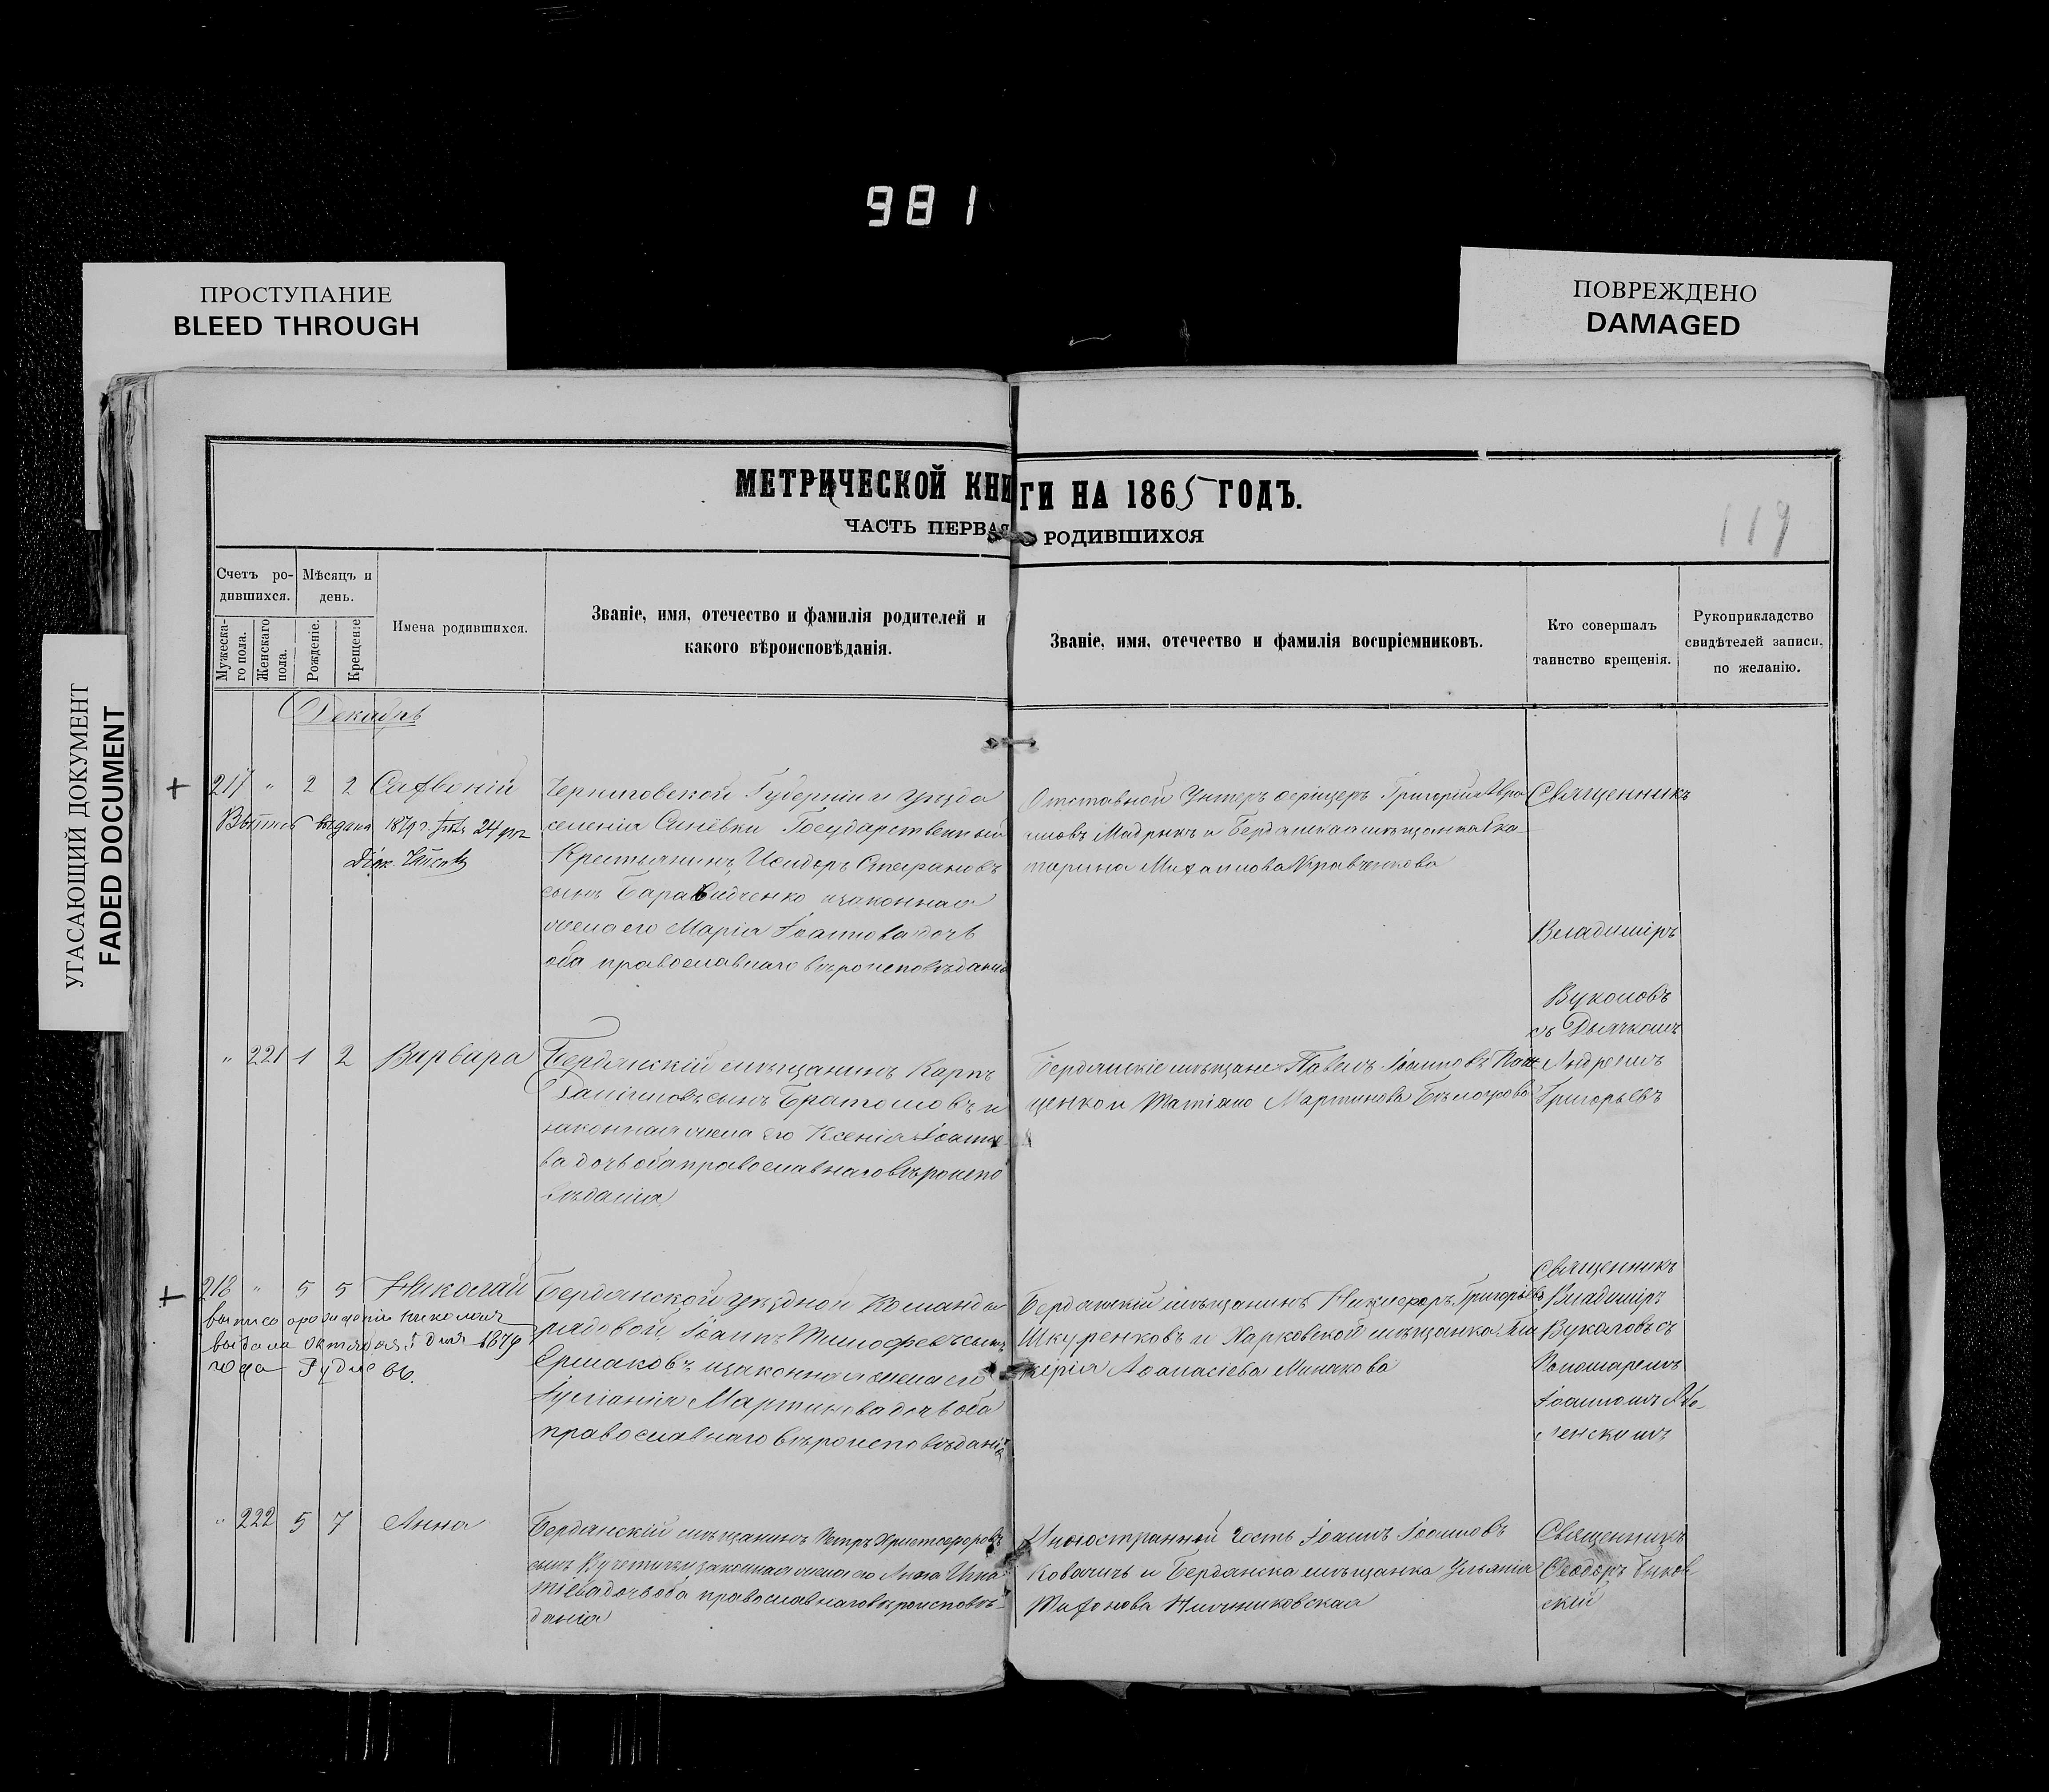 981
ПРОСТУПАНИЕ
BLEED THROUGH
ПОВРЕЖДЕНО
DAMAGED
УГАСАЮЩИЙ ДОКУМЕНТ
FADED DOCUMENT
МЕТРИЧЕСКОЙ КНИГИ НА 1865 ГОДЪ.
ЧАСТЬ ПЕРВАЯ О РОДИВШИХСЯ
119
Счетъ ро-
дившихся.
Мужеска-
го пола.
Женскаго
пола.
Мѣсяцъ и
день.
Рожденіе.
Крещеніе
Имена родившихся.
Званіе, имя, отечество и фамилія родителей и
какого вѣроисповѣданія.
Званіе, имя, отечество и фамилія воспріемниковъ.
Кто совершалъ
таинство крещенія.
Рукоприкладство
свидѣтелей записи,
по желанію.
Декабрь
217 " 2 2
выдана 1879 г. 24
Черниговской Губерніи и уѣзда
селенія Синёвки Государственный
Крестьянинъ Исидоръ Стефановъ
сынъ и законная
жена его Марія Іоаннова дочь
оба православнаго вѣроисповѣданія
Отставной Унтеръ офицеръ Григорій Авра
мовъ и Бердянская мѣщанка Ека
терина Михаилова Кравченкова
Священникъ
Владиміръ
Вуколовъ
съ Дьячкомъ
Андреемъ
Григорьевъ
" 221 1 2 Варвара
Бердянскій мѣщанинъ Карпъ
Даніиловъ сынъ и
законная жена его Ксенія Іоанно
ва дочь оба православнаго вѣроиспо
вѣданія
Бердянскіе мѣщане Павелъ Іоанновъ
ценко и Татіана Мартинова
218 " 5 5 Николай
выпись о рожденіи Николая
выдана Октября 5 дня 1879
года
Бердянской уѣздной Команды
рядовой Іоаннъ Тимофеевъ сынъ
Ермаковъ и законная жена его
Іуліанія Мартинова дочь оба
православнаго вѣроисповѣданія
Бердянскій мѣщанинъ Никифоръ Григорьевъ
Шкуренковъ и Харковской мѣщанка Гли
керія Аѳанасіева Минакова
Священникъ
Владиміръ
Вуколовъ съ
Пономаремъ
Іоанномъ
" 222 5 7 Анна
Бердянскій мѣщанинъ Петръ Христофоровъ
сынъ и законная жена его Анна Игна
тіева дочь оба православнаго вѣроисповѣ-
данія
Иностранный гость Іоаннъ Іоанновъ
Ковачичъ и Бердянска мѣщанка Ульянія
Священникъ
Ѳеодоръ
скій